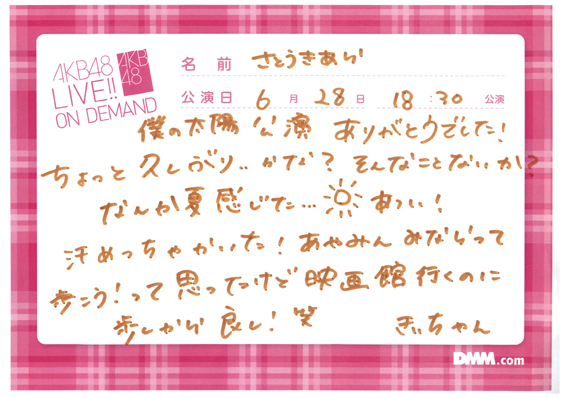 AKB48
LIVE!!
ON DEMAND
AKB
48
名前 さとうきあら
公演日 6月28日 18:30公演
僕の太陽公演 ありがとうでした!
ちょっと久しぶり..かな?そんなことないか?
なんか夏感じた…あつい!
汗めっちゃかいた!あやみんみならって
歩こう!って思ってたけど映画館行くのに
歩しかり良し!笑 きぃちゃん
DMM.com